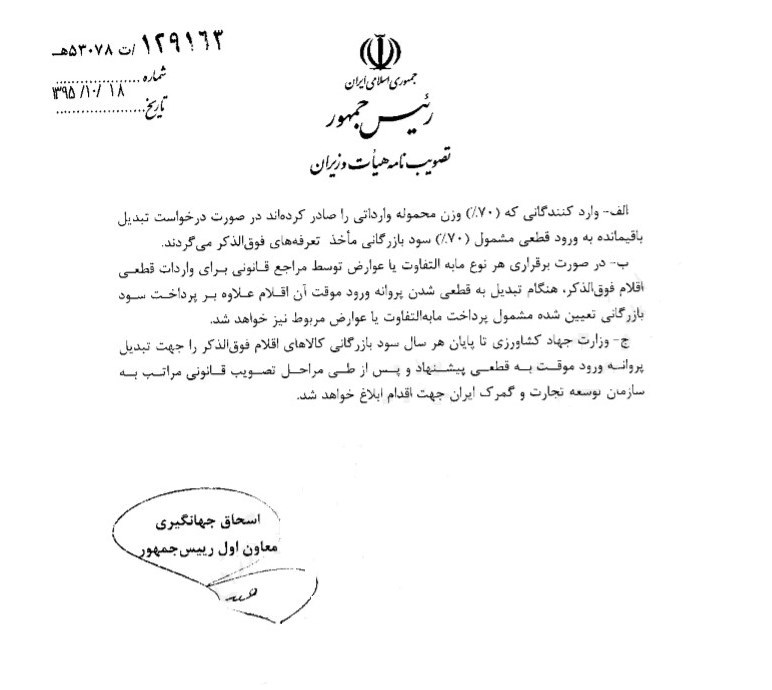 ۱۲۹۱۶۳ /ت ۵۳۰۷۸هـ
شماره
۱۳۹۵/۱۰/۱۸
تاریخ
جمهوری اسلامی ایران
رئیس جمهور
تصویب نامه هیأت وزیران
الف- وارد کنندگانی که (۷۰٪) وزن محموله وارداتی را صادر کرده‌اند در صورت درخواست تبدیل
باقیمانده به ورود قطعی مشمول (۷۰٪) سود بازرگانی مأخذ تعرفه‌های فوق‌الذکر می‌گردند.
ب- در صورت برقراری هر نوع مابه التفاوت یا عوارض توسط مراجع قانونی برای واردات قطعی
اقلام فوق‌الذکر، هنگام تبدیل به قطعی شدن پروانه ورود موقت آن اقلام علاوه بر پرداخت سود
بازرگانی تعیین شده مشمول پرداخت مابه‌التفاوت یا عوارض مربوط نیز خواهد شد.
ج- وزارت جهاد کشاورزی تا پایان هر سال سود بازرگانی کالاهای اقلام فوق‌الذکر را جهت تبدیل
پروانه ورود موقت به قطعی پیشنهاد و پس از طی مراحل تصویب قانونی مراتب به
سازمان توسعه تجارت و گمرک ایران جهت اقدام ابلاغ خواهد شد.
اسحاق جهانگیری
معاون اول رییس‌جمهور